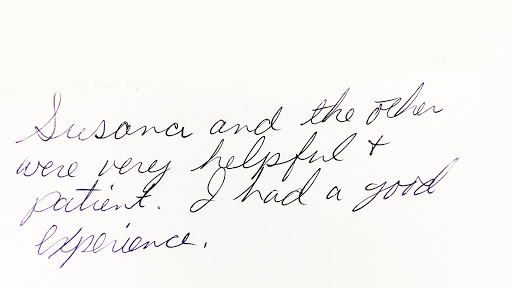 Susana and the other
were very helpful +
patient. I had a good
experience.